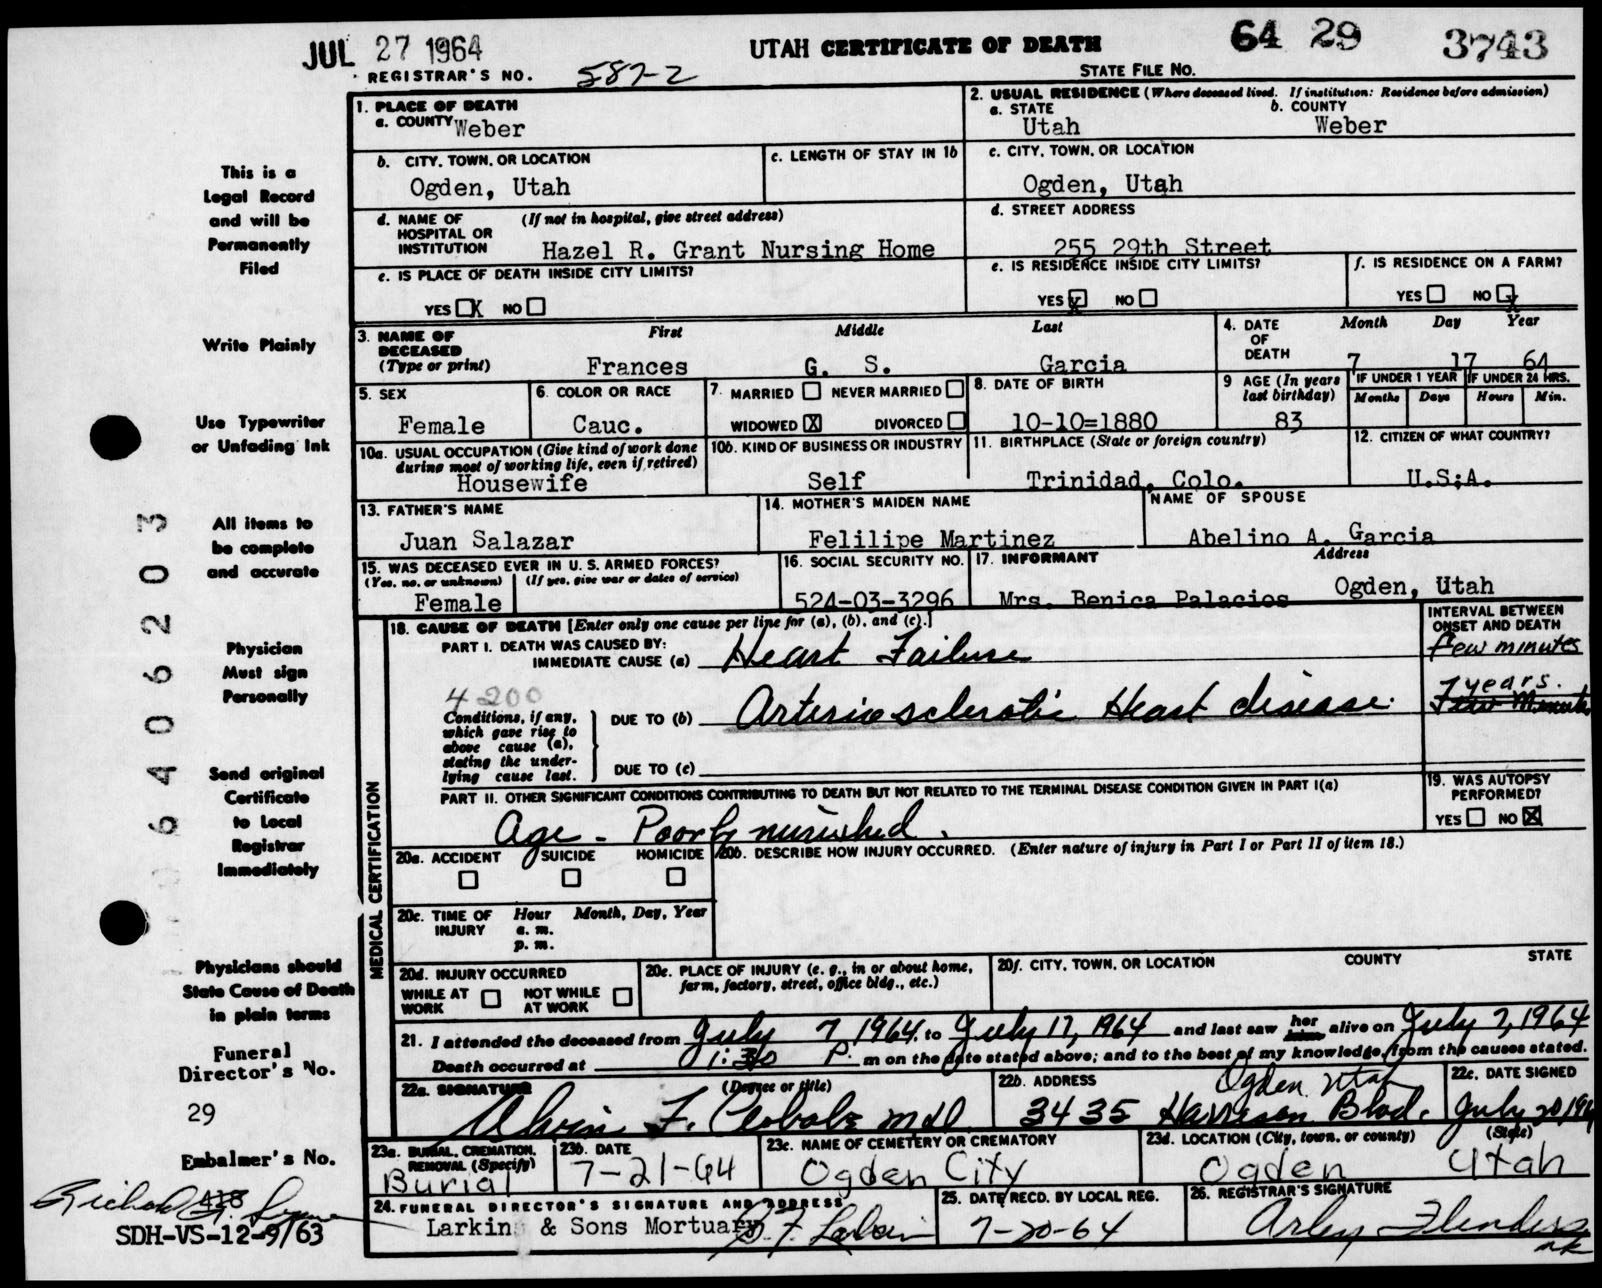 JUL 27 1964 UTAH CERTIFICATE OF DEATH 64 29 3743
REGISTRAR'S NO. 587-2 STATE FILE NO.
1. PLACE OF DEATH
a. COUNTY Weber
2. USUAL RESIDENCE (Where deceased lived. If institution: Residence before admission)
a. STATE Utah b. COUNTY Weber
b. CITY, TOWN, OR LOCATION Ogden, Utah
c. LENGTH OF STAY IN 1b
c. CITY, TOWN, OR LOCATION Ogden, Utah
d. NAME OF HOSPITAL OR INSTITUTION (If not in hospital, give street address)
Hazel R. Grant Nursing Home
d. STREET ADDRESS
255 29th Street
e. IS PLACE OF DEATH INSIDE CITY LIMITS?
YES X NO
e. IS RESIDENCE INSIDE CITY LIMITS?
YES X NO
f. IS RESIDENCE ON A FARM?
YES NO X
3. NAME OF DECEASED (Type or print)
First Middle Last
Frances G. S. Garcia
4. DATE OF DEATH Month Day Year
7 17 64
5. SEX Female
6. COLOR OR RACE Cauc.
7. MARRIED NEVER MARRIED
WIDOWED X DIVORCED
8. DATE OF BIRTH 10-10=1880
9 AGE (In years last birthday) 83
IF UNDER 1 YEAR Months Days
IF UNDER 24 HRS. Hours Min.
10a. USUAL OCCUPATION (Give kind of work done during most of working life, even if retired)
Housewife
10b. KIND OF BUSINESS OR INDUSTRY
Self
11. BIRTHPLACE (State or foreign country)
Trinidad, Colo.
12. CITIZEN OF WHAT COUNTRY?
U.S;A.
13. FATHER'S NAME
Juan Salazar
14. MOTHER'S MAIDEN NAME
Felilipe Martinez
NAME OF SPOUSE
Abelino A. Garcia
15. WAS DECEASED EVER IN U. S. ARMED FORCES?
(Yes, no, or unknown) (If yes, give war or dates of service)
Female
16. SOCIAL SECURITY NO.
524-03-3296
17. INFORMANT Address
Mrs. Benica Palacios Ogden, Utah
MEDICAL CERTIFICATION
18. CAUSE OF DEATH [Enter only one cause per line for (a), (b), and (c).]
INTERVAL BETWEEN ONSET AND DEATH
PART I. DEATH WAS CAUSED BY:
IMMEDIATE CAUSE (a) Heart Failure few minutes
4200
Conditions, if any, which gave rise to above cause (a), stating the underlying cause last.
DUE TO (b) Arteriosclerotic Heart disease. 7 years.
Few Minutes
DUE TO (c)
PART II. OTHER SIGNIFICANT CONDITIONS CONTRIBUTING TO DEATH BUT NOT RELATED TO THE TERMINAL DISEASE CONDITION GIVEN IN PART I(a)
Age - Poorly nurished.
19. WAS AUTOPSY PERFORMED?
YES NO X
20a. ACCIDENT SUICIDE HOMICIDE
20b. DESCRIBE HOW INJURY OCCURRED. (Enter nature of injury in Part I or Part II of item 18.)
20c. TIME OF INJURY Hour Month, Day, Year
a. m.
p. m.
20d. INJURY OCCURRED
WHILE AT WORK NOT WHILE AT WORK
20e. PLACE OF INJURY (e. g., in or about home, farm, factory, street, office bldg., etc.)
20f. CITY, TOWN, OR LOCATION COUNTY STATE
21. I attended the deceased from July 7, 1964. to July 17, 1964 and last saw her alive on July 7, 1964
Death occurred at 1:30 P. m on the date stated above; and to the best of my knowledge, from the causes stated.
22a. SIGNATURE (Degree or title)
22b. ADDRESS Ogden Utah
3435 Harrison Blvd.
22c. DATE SIGNED
July 20 1964
23a. BURIAL, CREMATION, REMOVAL (Specify)
Burial
23b. DATE
7-21-64
23c. NAME OF CEMETERY OR CREMATORY
Ogden City
23d. LOCATION (City, town, or county) (State)
Ogden Utah
24. FUNERAL DIRECTOR'S SIGNATURE AND ADDRESS
Larkin & Sons Mortuary
25. DATE RECD. BY LOCAL REG.
7-20-64
26. REGISTRAR'S SIGNATURE
This is a
Legal Record
and will be
Permanently
Filed
Write Plainly
Use Typewriter
or Unfading Ink
All items to
be complete
and accurate
Physician
Must sign
Personally
Send original
Certificate
to Local
Registrar
Immediately
Physicians should
State Cause of Death
in plain terms
Funeral
Director's No.
29
Embalmer's No.
418
SDH-VS-12-9/63